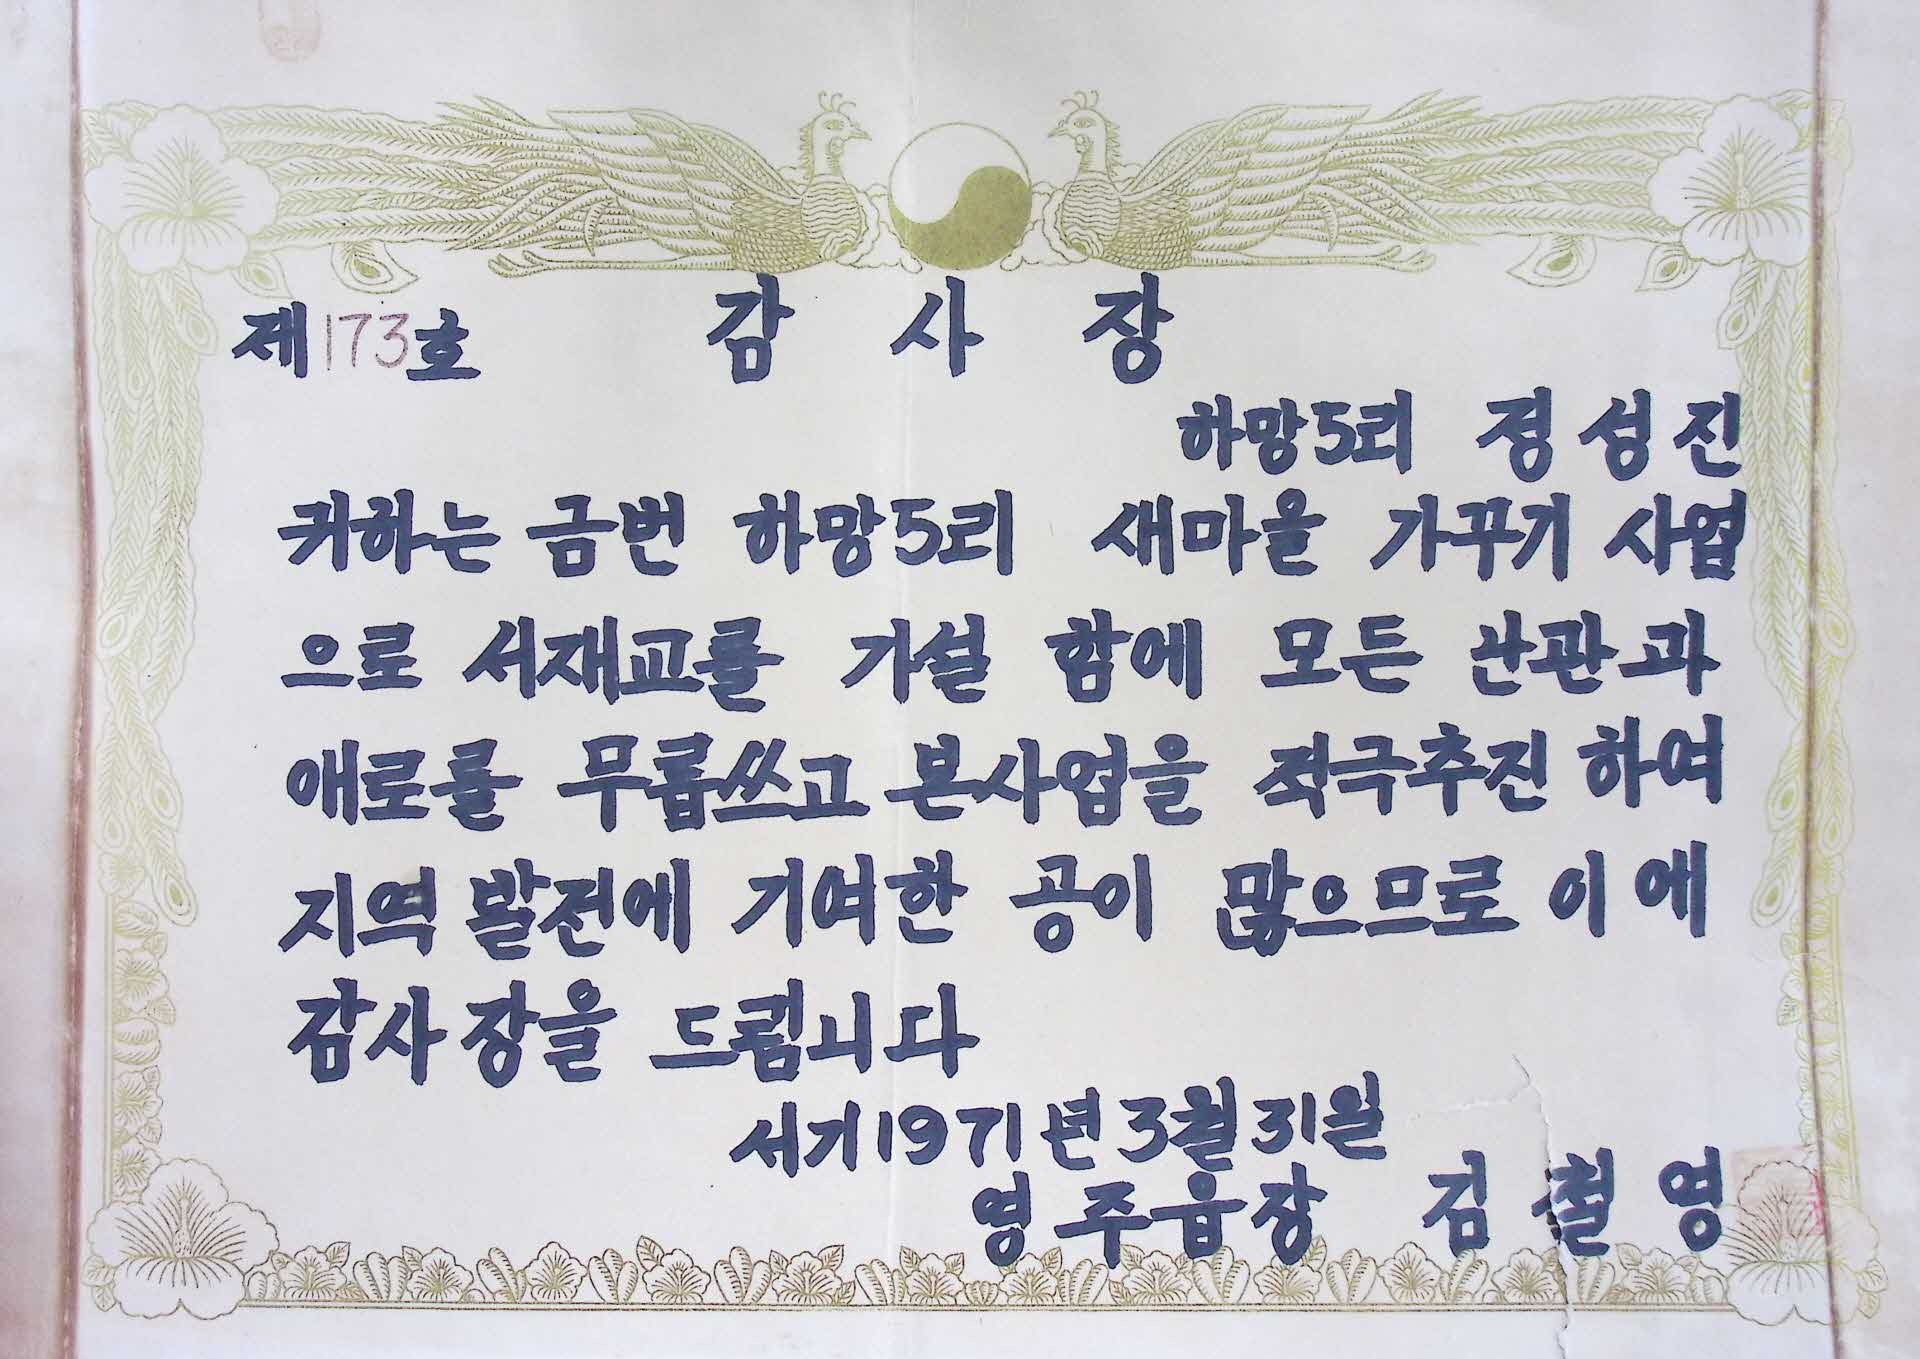 제173호 감사장
하망5리 정성진
귀하는 금번 하망5리 새마을 가꾸기 사업
으로 서재교를 가설 함에 모든 난관과
애로를 무릅쓰고 본사업을 적극추진 하여
지역 발전에 기여한 공이 많으므로 이에
감사장을 드립니다
서기1971년3월31일
영주읍장 김철영